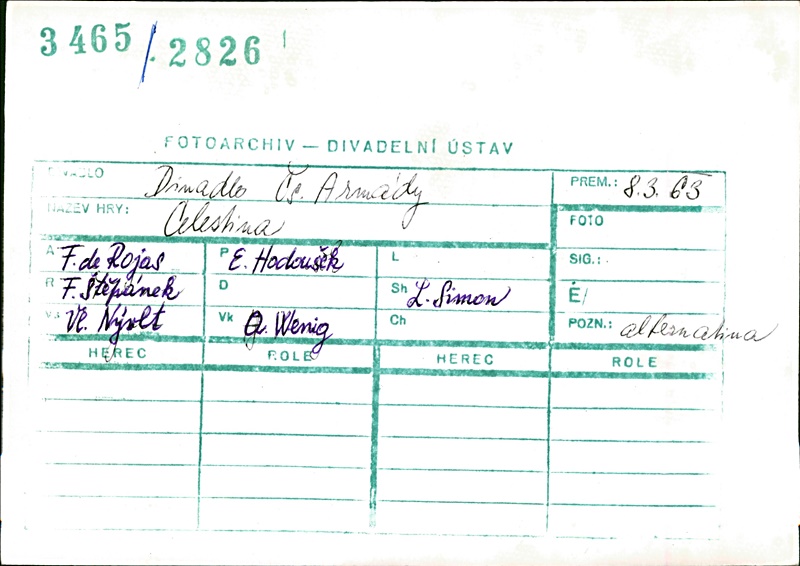 3465/2826
FOTOARCHIV — DIVADELNÍ ÚSTAV
DIVADLO Divadlo Čs. Armády PREM.: 8.3.63
NÁZEV HRY: Celestina FOTO
A F. de Rojas P E. Hodoušek L SIG.:
R F. Štěpánek D Sh L. Simon É/
Vl. Nývlt Vk Wenig Ch POZN.: alternativa
HEREC ROLE HEREC ROLE